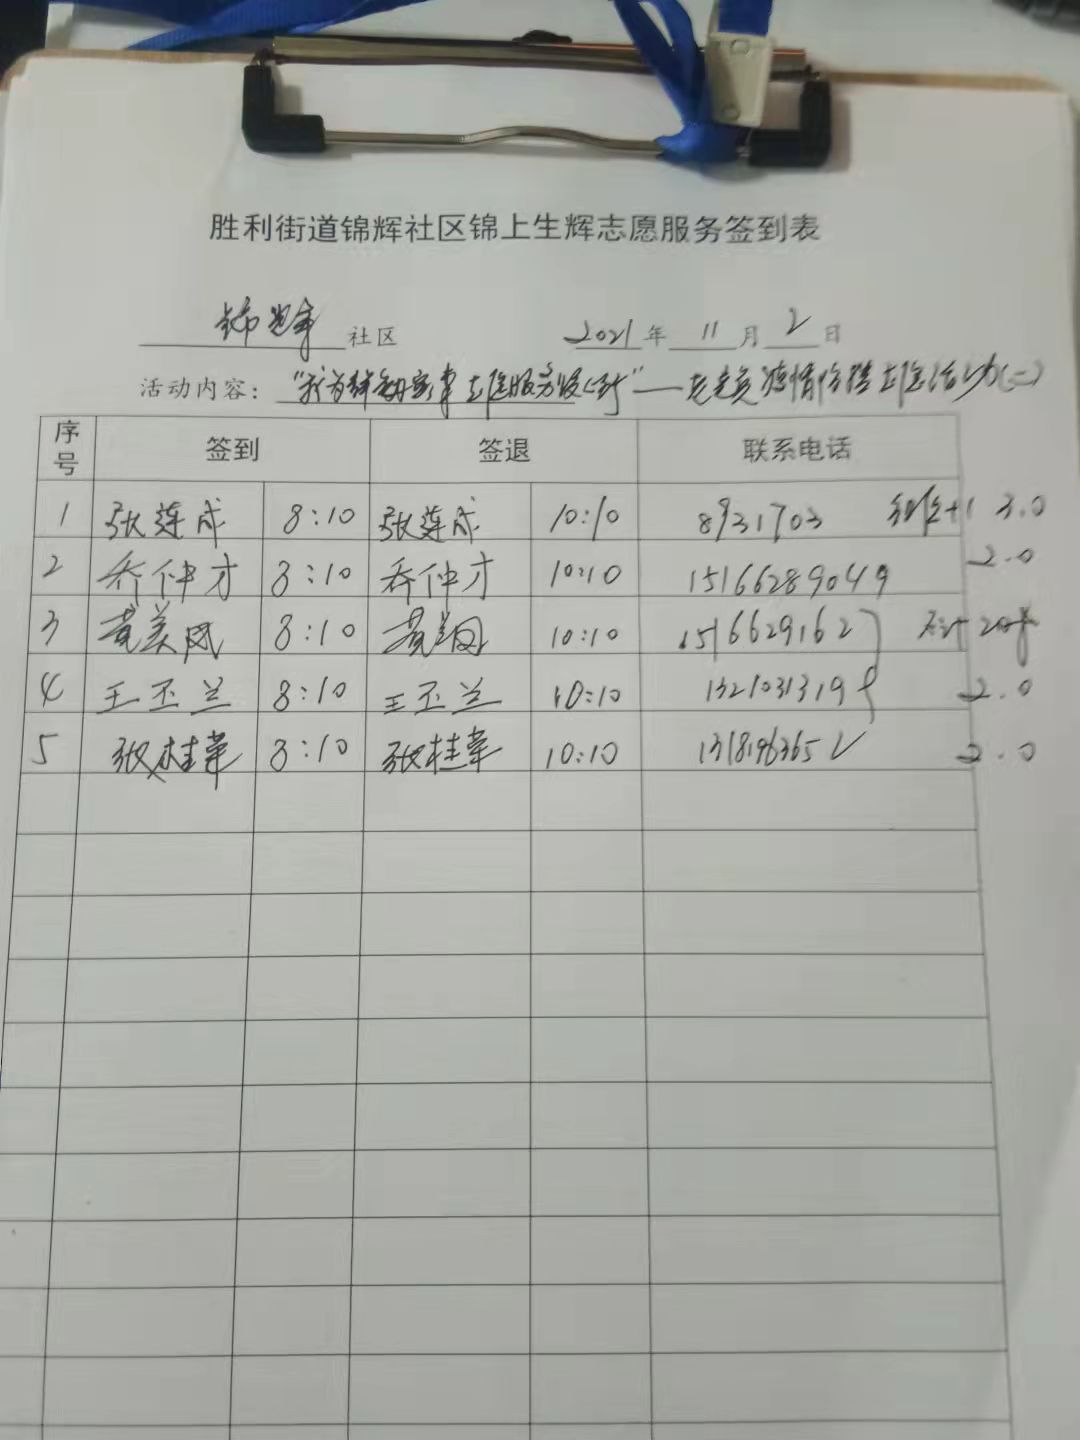 胜利街道锦辉社区锦上生辉志愿服务签到表
锦辉 社区 2021 年 11 月 2 日
活动内容： "我为群众办实事 志愿服务暖心行"——老党员 活动(二)
序号 签到 签退 联系电话
1 张莲成 8:10 张莲成 10:10 8931703 3.0
2 乔仲才 8:10 乔仲才 10:10 15166289049 2.0
3 黄美凤 8:10 黄美凤 10:10 1516629162
4 王丕兰 8:10 王丕兰 10:10 1321031319 2.0
5 张桂苹 8:10 张桂苹 10:10 1318196365 2.0